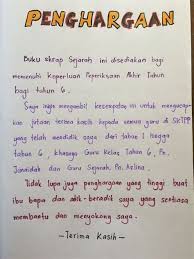 PENGHARGAAN
Buku skrap Sejarah ini disediakan bagi
memenuhi Keperluan Peperiksaan Akhir Tahun
bagi tahun 6.
Saya ingin mengambil kesempatan ini untuk mengucap-
kan jutaan terima kasih kepada semua guru di SKTPP
yang telah mendidik saya dari tahun 1 hingga
tahun 6, khasnya Guru Kelas Tahun 6, Pn.
Jannidah dan Guru Sejarah, Pn. Azlina.
Tidak lupa juga penghargaan yang tinggi buat
ibu bapa dan adik-beradik saya yang sentiasa
membantu dan menyokong saya.
-Terima Kasih-